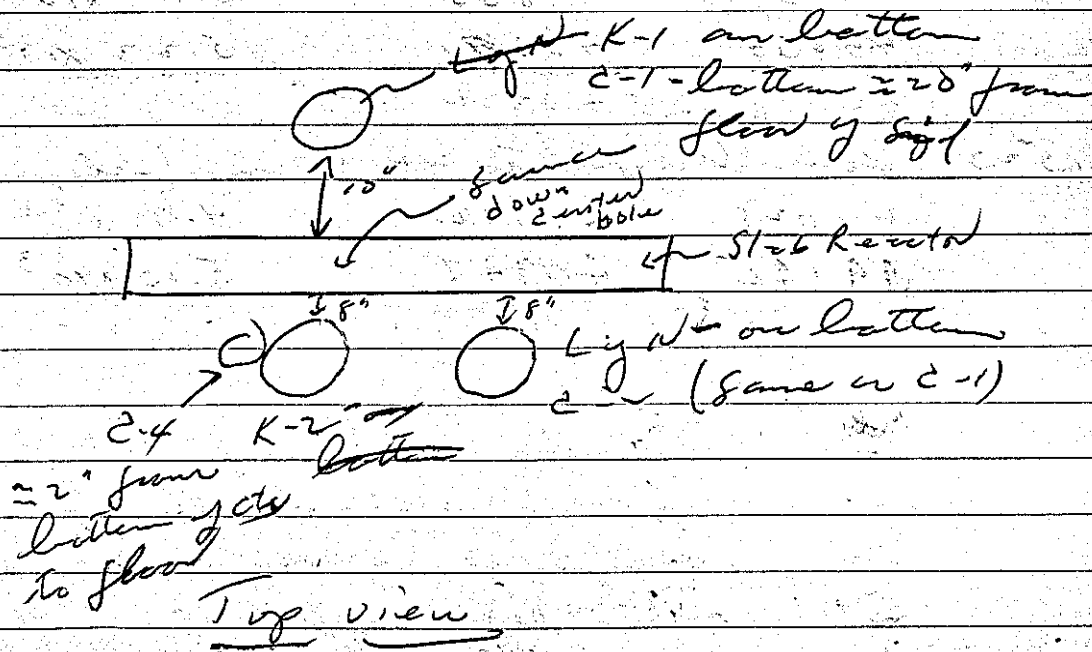 Log N K-1 on bottom
C-1 - bottom ≈ 20" from
floor of
10"
Source
down
center
hole
Slab Reactor
8"
8"
Log N - on bottom
C-2 (same as C-1)
C-4
K-2 on
bottom
≈ 2" from
bottom of
to floor
Top view